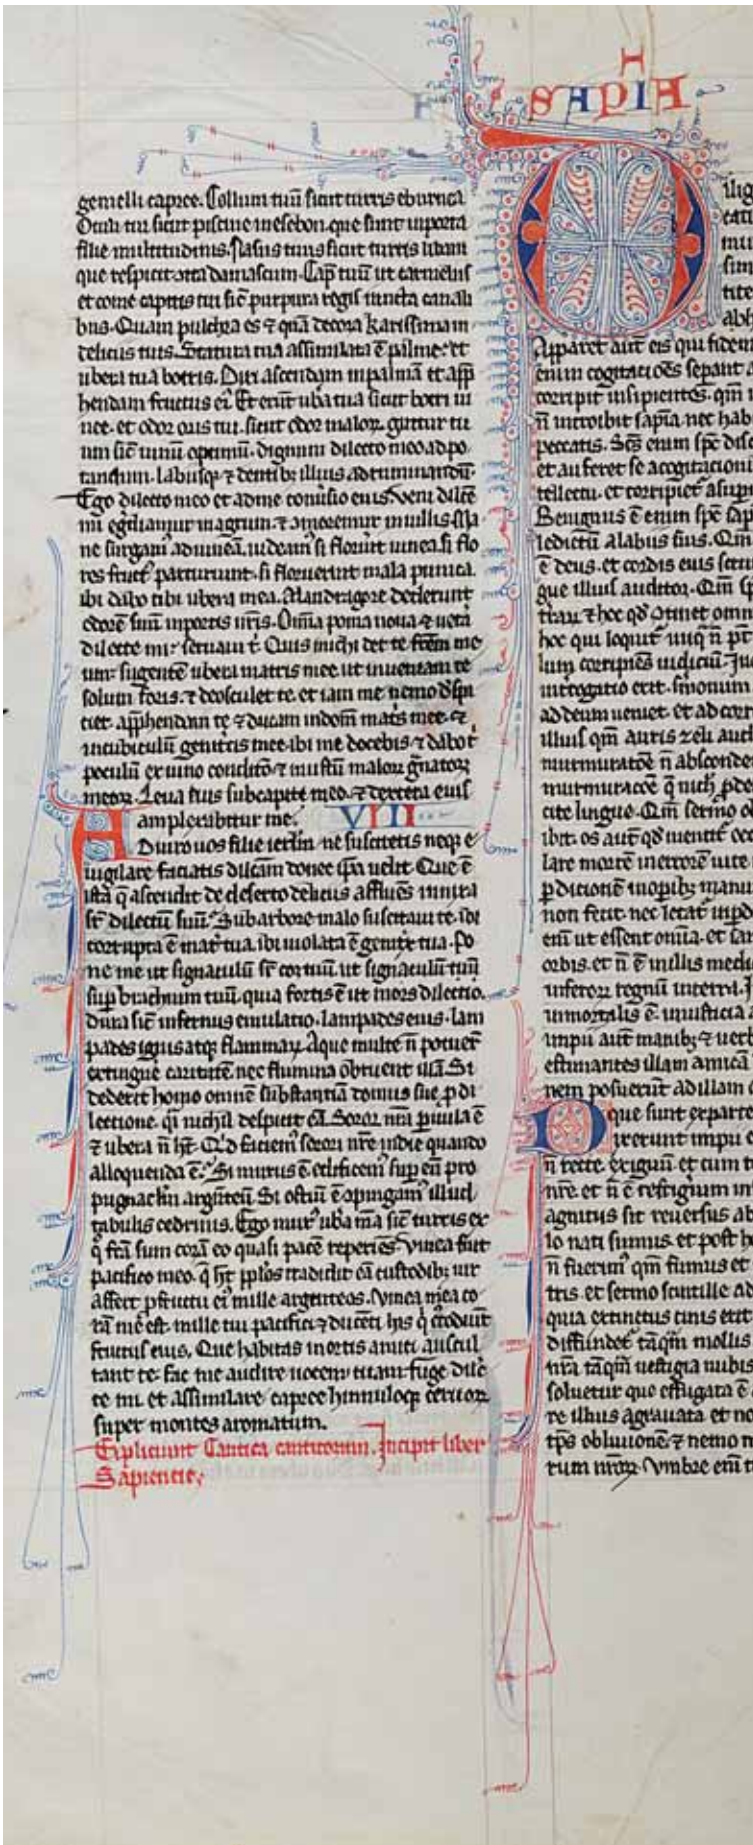 SAPIA
gemelli capree. Collum tuū sicut turris eburnea.
Oculi tui sicut piscine inesebon. que sunt inporta
filie multitudinis. Nasus tuus sicut turris libani
que respicit  damascum. Cap̄ tuū ut carmelus
et come capitis tui sic̄ purpura regis iuncta canali
bus. Quam pulchra es ⁊ quā decora karissima in
delicijs tuis. Statura tua assimilata ē palme. et
ubera tua botris. Dixi ascendam inpalmā et app̄
hendam fructus ei⁹. Et erūt ub̄a tua sicut botri ui
nee. et odor oris tui. sicut odor maloꝝ. guttur tu
um sic̄ uinū optimū. dignum dilecto meo adpo
tandum. labiisqꝫ ⁊ dentibꝫ illius adruminandū.
Ego dilecto meo et adme conuersio eius. Veni dilc̄e
mi egrediamur inagrum. ⁊ cōmoremur inuillis. Ma
ne surgam⁹ aduineā. uideam⁹ si floruit uinea. si flo
res fruct⁹ parturiunt. si floruerunt mala punica.
ibi dabo tibi ubera mea. Mandragore dederunt
odorē suū inportis nr̄is. Om̄ia poma noua ⁊ uet̄a
dilecte mi seruaui t̄. Quis michi det te fr̄em me
um sugentē ubera matris mee. ut inueniam te
solum foris. ⁊ deosculer te. et iam me nemo d̄spi
ciet. app̄hendam te ⁊ ducam indom̄ mat̄s mee. ⁊
incubiculū genitricis mee. ibi me docebis ⁊ dabo t̄
poculū ex uino condito ⁊ mustū maloꝝ ḡnatoꝝ
meoꝝ. Leua eius subcapite meo. ⁊ dextera eius
amplexabitur me. VIII
Adiuro uos filie ierl̄m. ne suscitetis neqꝫ e
uigilare faciatis dilc̄am donec ip̄a uelit. Que ē
ista q̄ ascendit de deserto delicijs affluēs innixa
sr̄ dilectū suū. Subarbore malo suscitaui te. ibi
corrupta ē mat̄ tua. ibi uiolata ē genit̄x tua. Po
ne me ut signaculū sr̄ cor tuū. ut signaculū
sup̄ brachium tuū. quia fortis ē ut mors dilectio.
dura sic̄ infernus emulatio. lampades eius. lam
pades ignis atqꝫ flammaꝝ. Aque multe n̄ potuer̄
extingue caritatē. nec flumina obruent illā. Si
dederit homo omnē substantiā domus sue p̄ di
lectione. q̄i nichil despiciet eā. Soror nr̄a p̄uula ē
⁊ ubera n̄ ht̄. Qd̄ faciem⁹ sorori nr̄e indie quando
alloquenda ē. Si murus ē. edificem⁹ sup̄ eū pro
pugnac̄la argēteū. Si ostiū ē. cōpingam⁹ illud
tabulis cedrinis. Ego mur⁹. ub̄a m̄a sic̄ turris ex
q̄ fc̄a sum corā eo quasi pacē reperiēs. Vinea fuit
pacifico meo. q̄ ht̄ pp̄los. tradidit eā custodibꝫ. uir
affert p̄ fructu ei⁹ mille argenteos. Vinea mea co
rā me est. mille tui pacifici ⁊ ducēti his q̄ custodiūt
fructus eius. Que habitas inortis amici auscul
tant te. fac me audire uocem tuam. fuge dilc̄
te mi. et assimilare capree hinnuloqꝫ ceruoꝝ
super montes aromatum.
Expliciunt Cantica canticorum. Incipit liber
Sapientie.
Dilig
mu
sim
abh
Apparet aut̄ eis qui fidem
enim cogitacōēs sepant a
corripit insipientes. qm̄
n̄ introibit sapīa. nec hab
peccatis. Sc̄s enim spc̄ disc
et auferet se acogitacioni
tellectu. et corripiet̄ asup
Benignus ē enim spc̄ sap
ledictū alabiis suis. Qm̄
ē deus. et cordis eius scru
gue illius auditor. Qm̄ sp
traꝝ ⁊ hoc qd̄ ꝯtinet omn
hoc qui loquit̄ iniq̄ n̄ pt̄
lum corripiēs iudiciū. In
int̄rogatio erit. sm̄onum
addeum ueniet. et ad corr
illius qm̄ auris zeli audi
murmuratōē n̄ absconde
murmuracōē q̄ nich̄ p̄de
cite lingue. Qm̄ sermo ob
ibit. os aut̄ qd̄ mentit̄ occ
lare mortē inerrore uite
p̄dicionē inopībꝫ manu
non fecit. nec letat̄ inp̄d
eni ut essent omīa. et san
orbis. et n̄ ē inillis medi
inferoꝝ regnū interra. I
inmortalis ē. iniusticia a
Impii aut̄ manibꝫ ⁊ uerb
estimantes illam amicā
nem posuerūt adillam
que sunt exparte
Dixerunt impii c
n̄ recte. exiguū et cum t
nr̄e. et n̄ ē refrigium in
agnitus sit reuersus ab
lo nati sumus. et post h
n̄ fuerim⁹ qm̄ fumus et
tris. et sermo scintille ad
quia extinctus cinis erit
diffundet̄ tāqm̄ mollis
nr̄a tāqm̄ uestigia nubis
soluetur que effugata ē
re illius agrauata et no
tp̄s obliuionē. ⁊ nemo m
rum nr̄oꝝ. Vmbre eni t